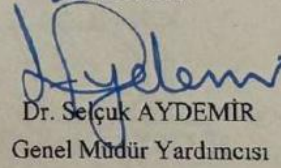 Aydemir
Dr. Selçuk AYDEMİR
Genel Müdür Yardımcısı